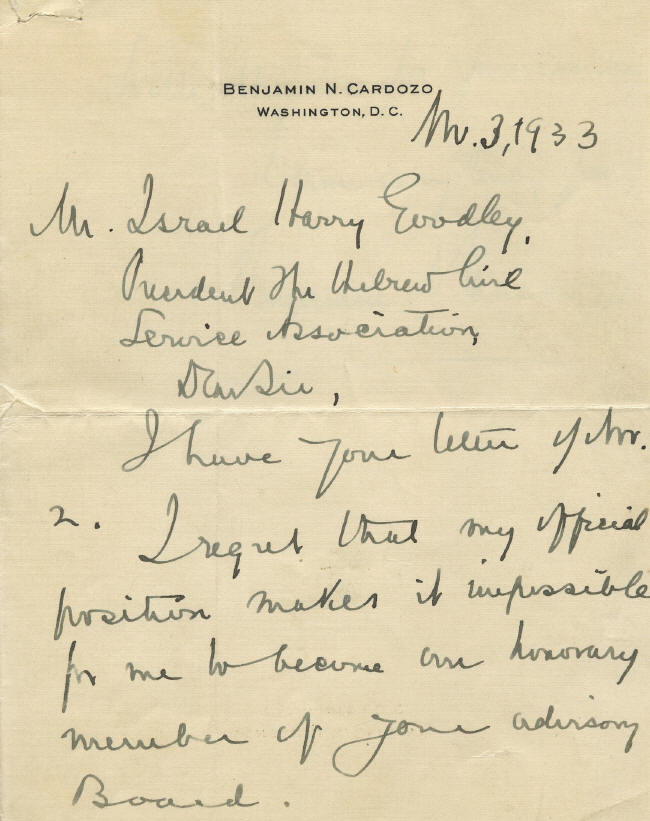 BENJAMIN N. CARDOZO
WASHINGTON, D. C.
Nov. 3, 1933
Mr. Israel Harry Goodley,
President The Hebrew Civil
Service Association,
Dear Sir,
I have your letter of Nov.
2. I regret that my official
position makes it impossible
for me to become an honorary
member of your advisory
Board.